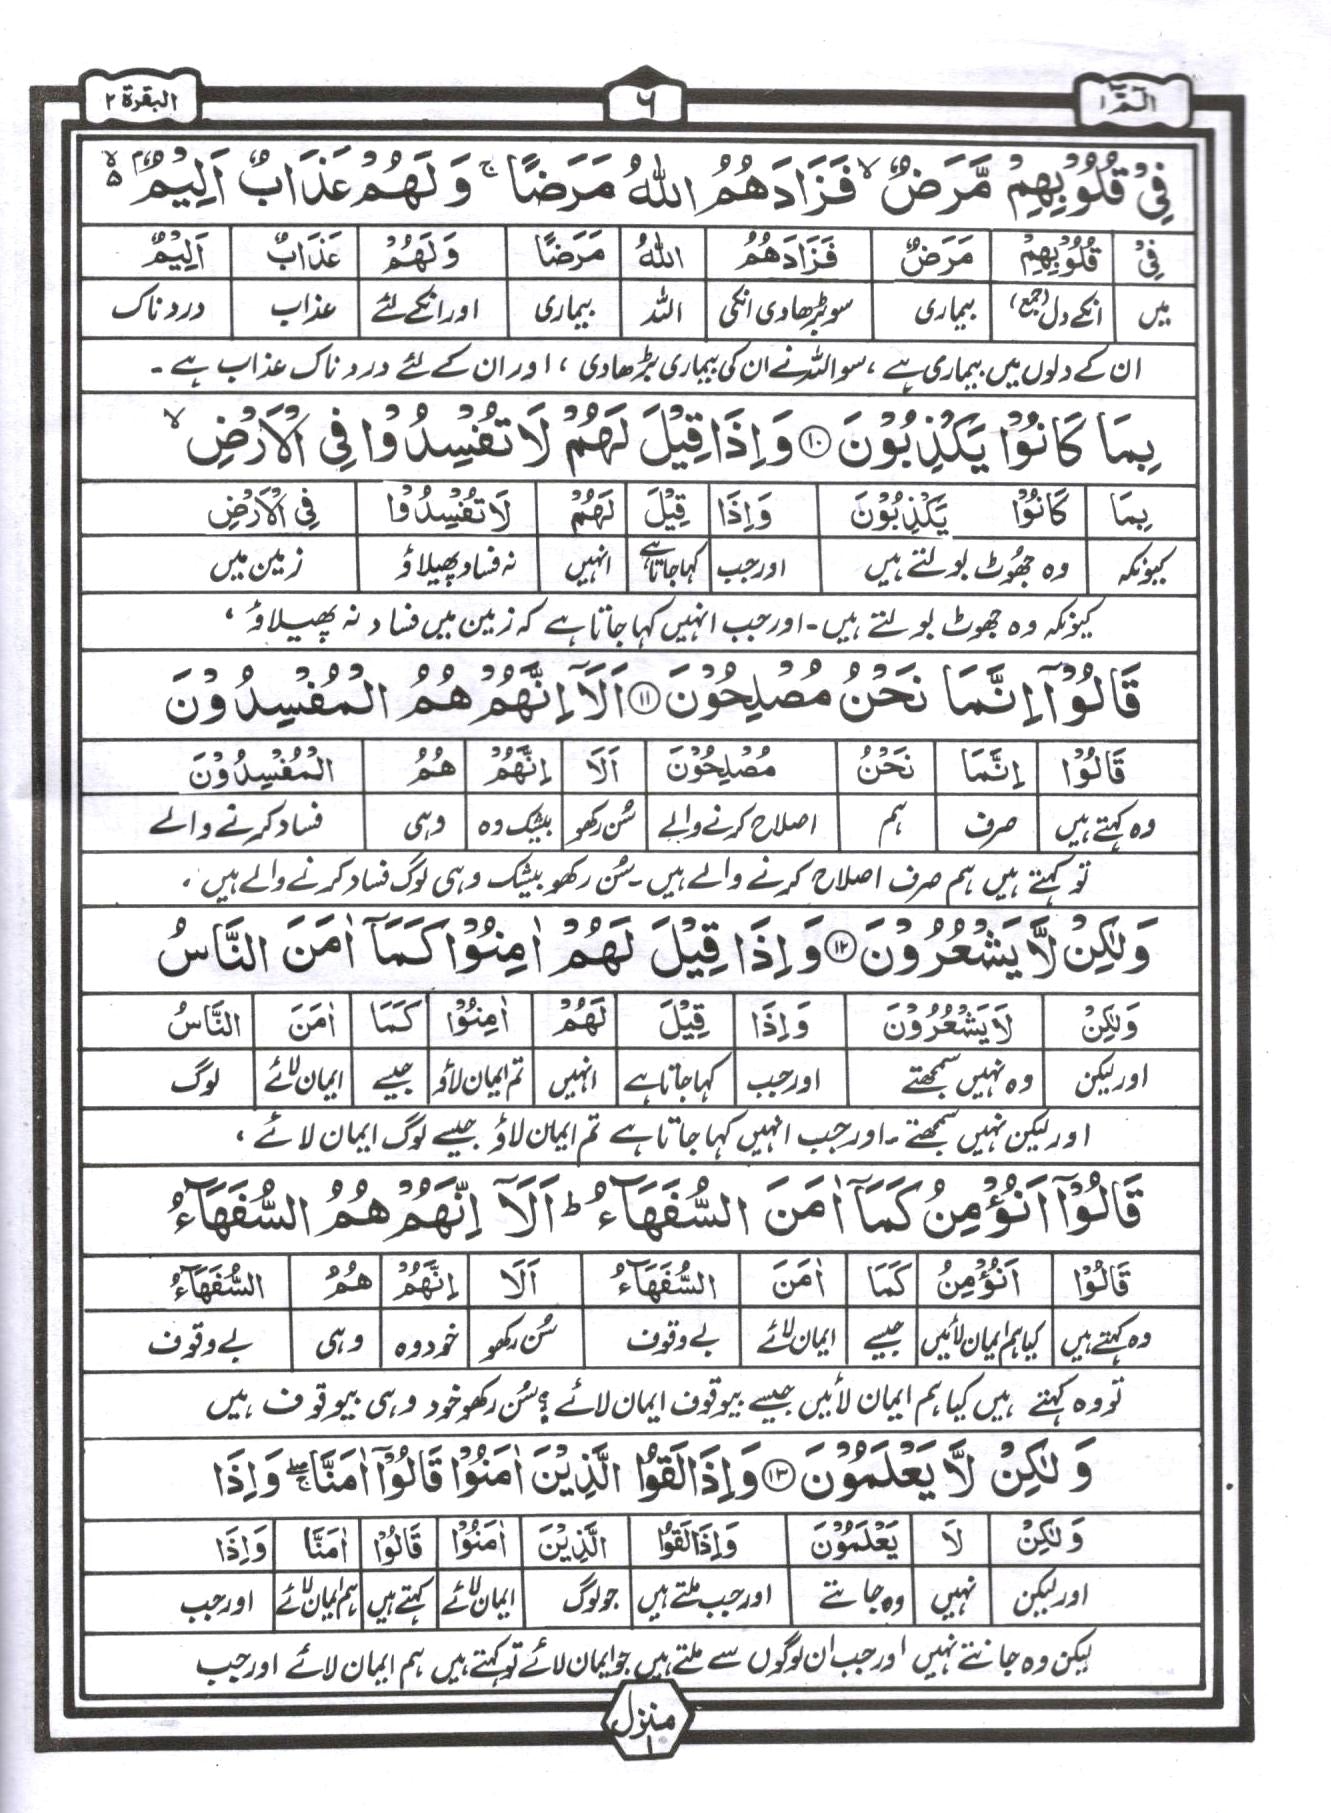 الٓمّٓ ۱
۶
البقرة ۲
فِیْ قُلُوْبِهِمْ مَّرَضٌ ۙ فَزَادَهُمُ اللّٰهُ مَرَضًا ۚ وَ لَهُمْ عَذَابٌ اَلِیْمٌۢ ۙ۬
فِیْ قُلُوْبِهِمْ مَرَضٌ فَزَادَهُمُ اللّٰهُ مَرَضًا وَلَهُمْ عَذَابٌ اَلِیْمٌ
میں انکے دل (جمع) بیماری سو بڑھادی انکی اللہ بیماری اور انکے لئے عذاب دردناک
ان کے دلوں میں بیماری ہے ، سو اللہ نے ان کی بیماری بڑھادی ، اور ان کے لئے دردناک عذاب ہے ۔
بِمَا كَانُوْا یَكْذِبُوْنَ ۱۰ وَ اِذَا قِیْلَ لَهُمْ لَا تُفْسِدُوْا فِی الْاَرْضِ ۙ
بِمَا كَانُوْا یَكْذِبُوْنَ وَاِذَا قِیْلَ لَهُمْ لَا تُفْسِدُوْا فِی الْاَرْضِ
کیونکہ وہ جھوٹ بولتے ہیں اور جب کہا جاتا ہے انہیں نہ فساد پھیلاؤ زمین میں
کیونکہ وہ جھوٹ بولتے ہیں ۔ اور جب انہیں کہا جاتا ہے کہ زمین میں فساد نہ پھیلاؤ ،
قَالُوْۤا اِنَّمَا نَحْنُ مُصْلِحُوْنَ ۱۱ اَلَاۤ اِنَّهُمْ هُمُ الْمُفْسِدُوْنَ
قَالُوْا اِنَّمَا نَحْنُ مُصْلِحُوْنَ اَلَا اِنَّهُمْ هُمُ الْمُفْسِدُوْنَ
وہ کہتے ہیں صرف ہم اصلاح کرنے والے سُن رکھو بیشک وہ وہی فساد کرنے والے
تو کہتے ہیں ہم صرف اصلاح کرنے والے ہیں ۔ سُن رکھو بیشک وہی لوگ فساد کرنے والے ہیں ۔
وَ لٰكِنْ لَّا یَشْعُرُوْنَ ۱۲ وَ اِذَا قِیْلَ لَهُمْ اٰمِنُوْا كَمَاۤ اٰمَنَ النَّاسُ
وَلٰكِنْ لَا یَشْعُرُوْنَ وَاِذَا قِیْلَ لَهُمْ اٰمِنُوْا كَمَا اٰمَنَ النَّاسُ
اور لیکن وہ نہیں سمجھتے اور جب کہا جاتا ہے انہیں تم ایمان لاؤ جیسے ایمان لائے لوگ
اور لیکن نہیں سمجھتے ۔ اور جب انہیں کہا جاتا ہے تم ایمان لاؤ جیسے لوگ ایمان لائے ،
قَالُوْۤا اَنُؤْمِنُ كَمَاۤ اٰمَنَ السُّفَهَآءُ ؕ اَلَاۤ اِنَّهُمْ هُمُ السُّفَهَآءُ
قَالُوْا اَنُؤْمِنُ كَمَا اٰمَنَ السُّفَهَآءُ اَلَا اِنَّهُمْ هُمُ السُّفَهَآءُ
وہ کہتے ہیں کیا ہم ایمان لائیں جیسے ایمان لائے بے وقوف سُن رکھو خود وہ وہی بے وقوف
تو وہ کہتے ہیں کیا ہم ایمان لائیں جیسے بیوقوف ایمان لائے ؟ سُن رکھو خود وہی بیوقوف ہیں
وَ لٰكِنْ لَّا یَعْلَمُوْنَ ۱۳ وَ اِذَا لَقُوا الَّذِیْنَ اٰمَنُوْا قَالُوْۤا اٰمَنَّا ۖۚ وَ اِذَا
وَلٰكِنْ لَا یَعْلَمُوْنَ وَاِذَا لَقُوا الَّذِیْنَ اٰمَنُوْا قَالُوْا اٰمَنَّا وَاِذَا
اور لیکن نہیں وہ جانتے اور جب ملتے ہیں جو لوگ ایمان لائے کہتے ہیں ہم ایمان لائے اور جب
لیکن وہ جانتے نہیں اور جب ان لوگوں سے ملتے ہیں جو ایمان لائے تو کہتے ہیں ہم ایمان لائے اور جب
منزل
۱